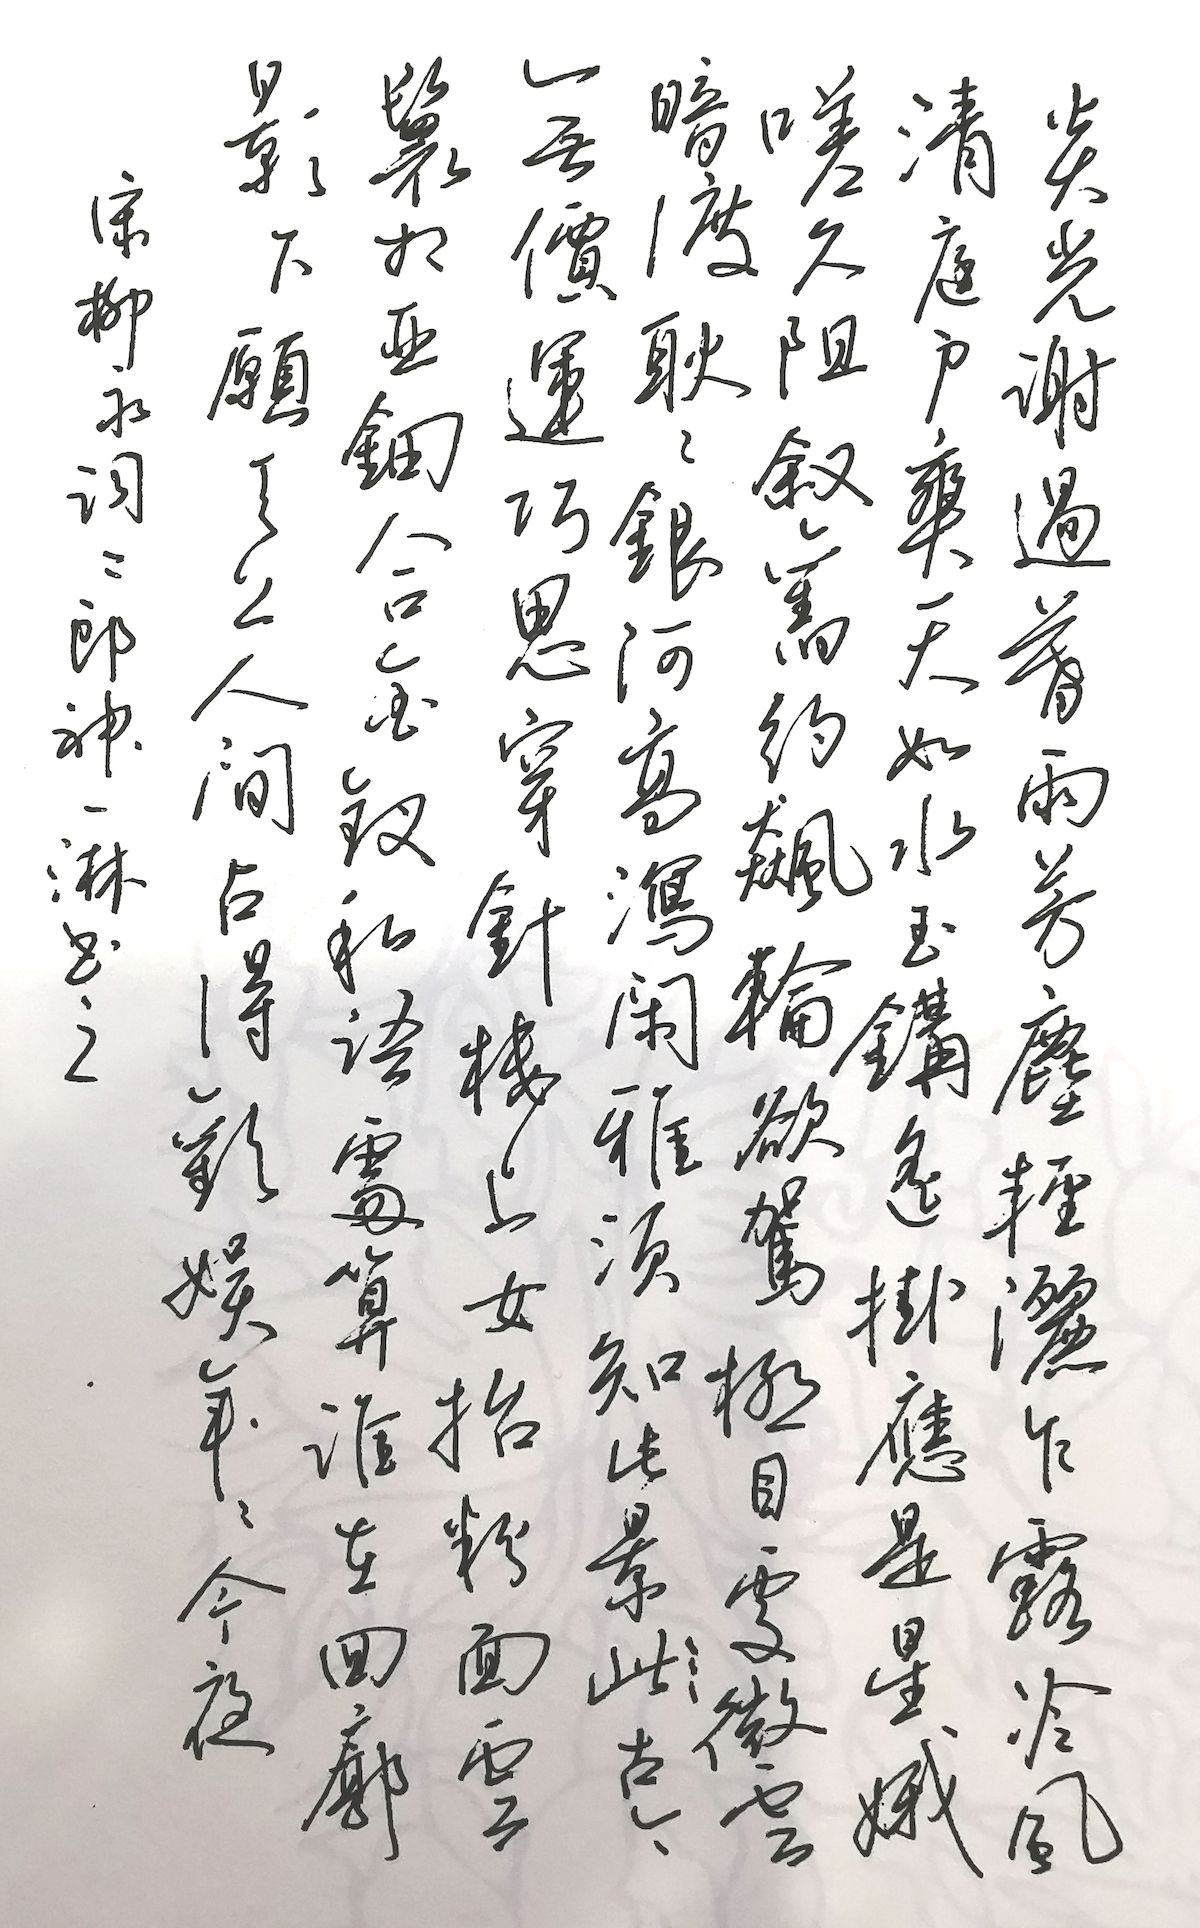 炎光謝過暮雨芳塵輕灑乍露冷風
清庭户爽天如水玉鉤遙掛應是星娥
嗟久阻叙舊約飆輪欲駕極目處微雲
暗渡耿〻銀河高瀉閑雅須知此景此古今
無價運巧思穿針樓上女抬粉面雲
鬟相亞鈿合金釵私語處算誰在回廊
影下願天上人間占得歡娱年〻今夜
宋柳永詞二郎神一淋書之